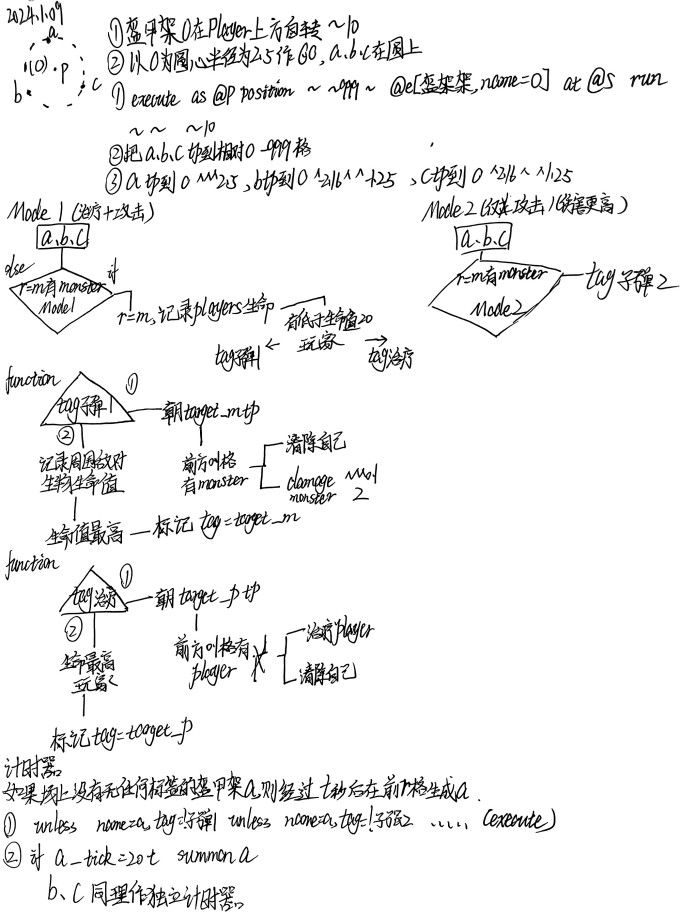 2024.1.09
a
(0) · p
b
c
① 盔甲架O在Player上方自转 ~10
② 以O为圆心半径为2.5作⊙O, a、b、c在圆上
① execute as @p position ~ ~999 ~ @e[盔架架, name=O] at @s run
~ ~ ~10
② 把a、b、c tp到相对O -999格
③ a tp到O ^^^2.5, b tp到O ^2.16^^-1.25, c tp到O ^2.16^^1.25
Mode 1 (治疗+攻击)
a、b、c
else
if
r=m有monster
Mode1
r=m, 记录players生命
有低于生命值20
玩家
tag子弹1
tag治疗
Mode 2 (攻击) (伤害更高)
a、b、c
r=m有monster
Mode2
tag子弹2
function
tag子弹1
①
朝target_m tp
②
记录周围敌对
生物生命值
前方1格
有monster
清除自己
damage
monster
2
生命值最高
标记 tag=target_m
function
tag治疗
①
朝target_p tp
②
生命最高
玩家
前方1格有
player
治疗player
清除自己
标记tag=target_p
计时器
如果场上没有无任何标签的盔甲架a,则经过t秒后在前r格生成a.
① unless name=a, tag=!子弹1 unless name=a, tag=!子弹2 ...... (execute)
② if a_tick=20t summon a
b、c同理作独立计时器